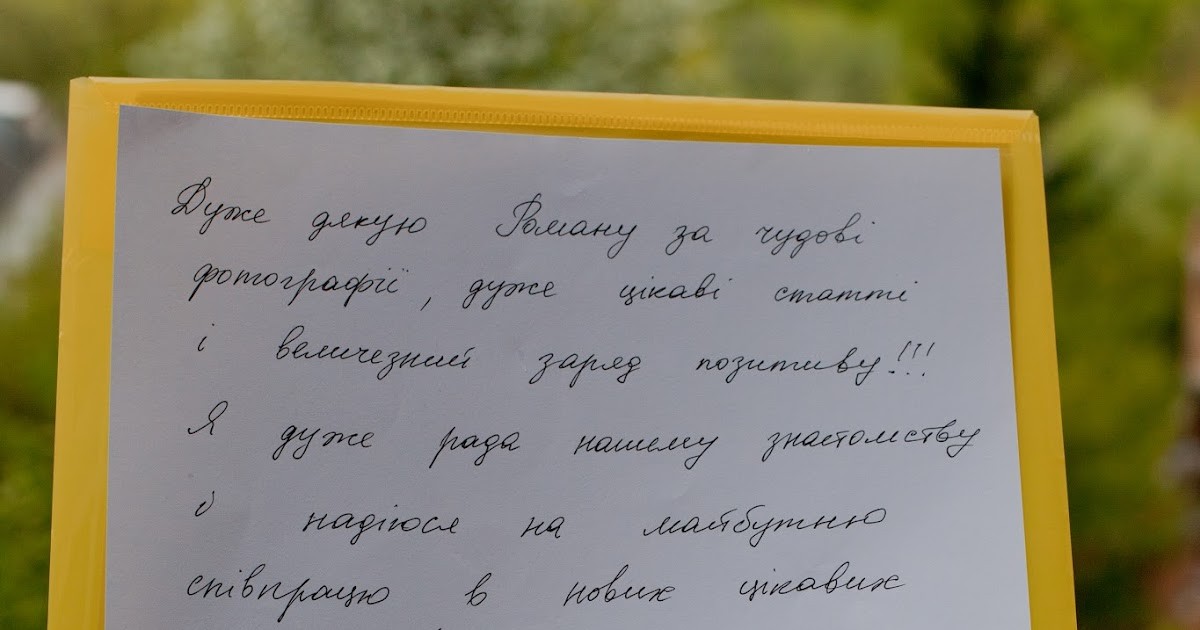 Дуже дякую Роману за чудові
фотографії, дуже цікаві статті
і величезний заряд позитиву!!!
Я дуже рада нашому знайомству
і надіюся на майбутню
співпрацю в нових цікавих